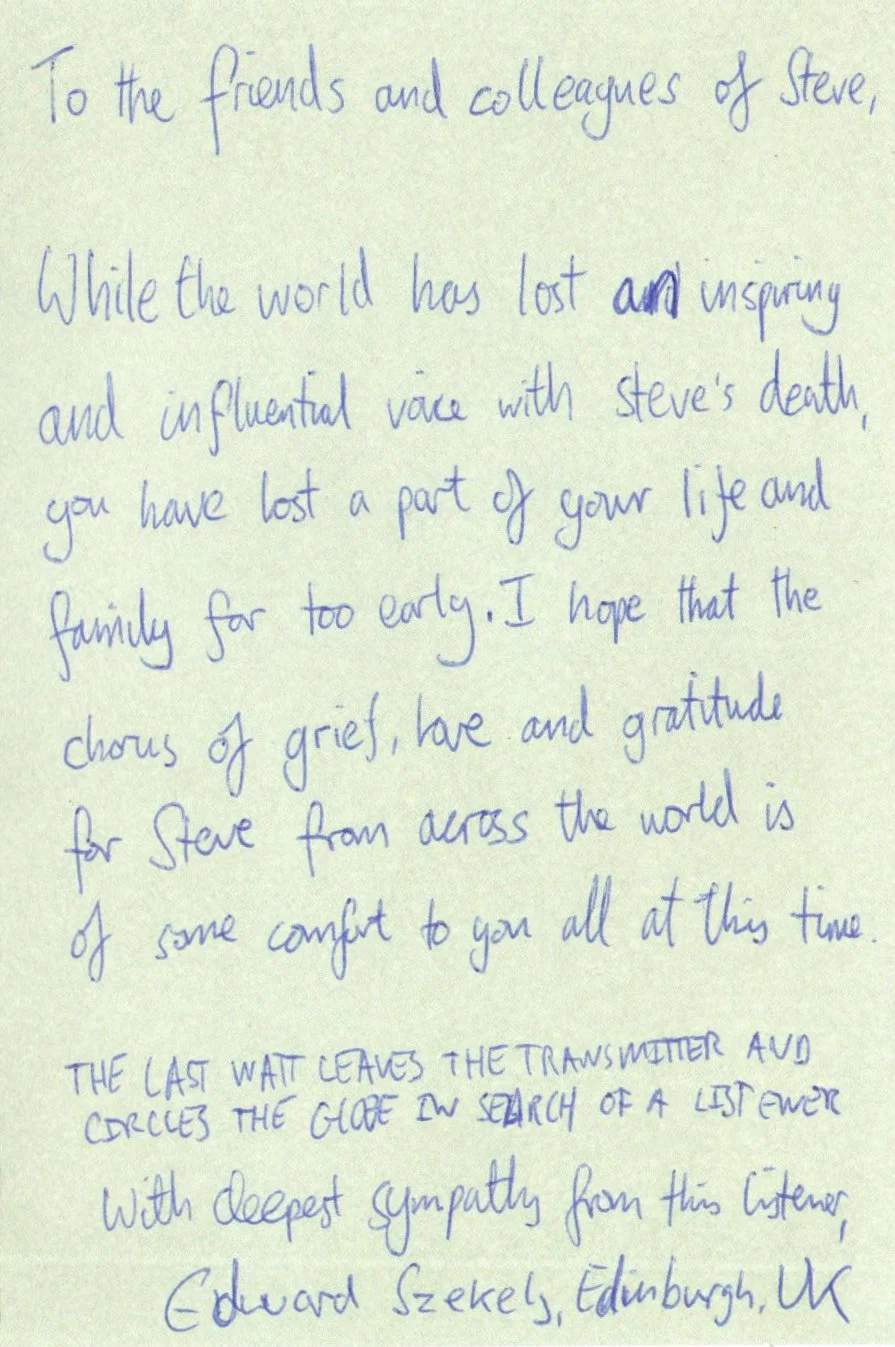 To the friends and colleagues of Steve,
While the world has lost an inspiring
and influential voice with Steve's death,
you have lost a part of your life and
family far too early. I hope that the
chorus of grief, love and gratitude
for Steve from across the world is
of some comfort to you all at this time.
THE LAST WATT LEAVES THE TRANSMITTER AND
CIRCLES THE GLOBE IN SEARCH OF A LISTENER
With deepest sympathy from this listener,
Edward Szekely, Edinburgh, UK